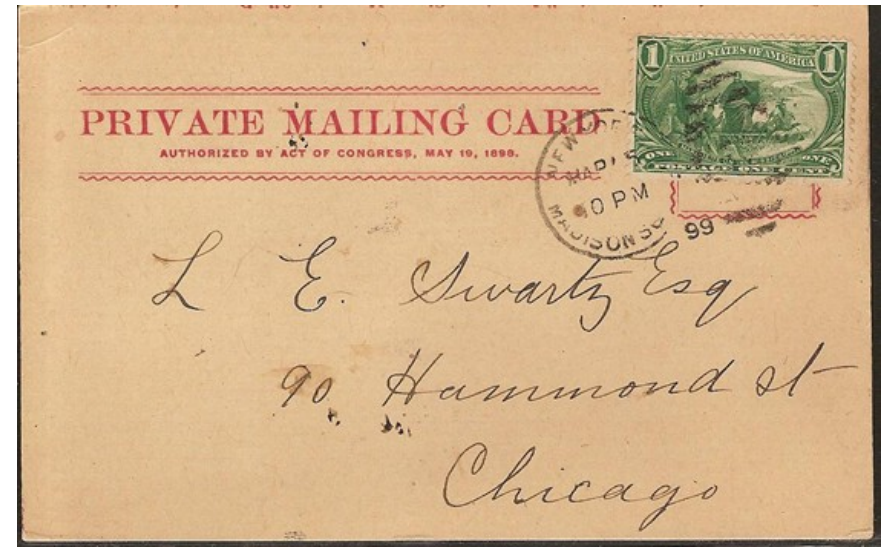 PRIVATE MAILING CARD
AUTHORIZED BY ACT OF CONGRESS, MAY 19, 1898.
1 UNITED STATES OF AMERICA 1
POSTAGE ONE CENT
NEW YORK
MAR
10 PM
MADISON SQ
99
L E. Swartz Esq
90 Hammond st
Chicago